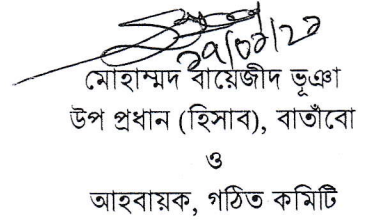 মোহাম্মদ বায়েজীদ ভূঞা
উপ প্রধান (হিসাব), বাতাঁবো
ও
আহবায়ক, গঠিত কমিটি